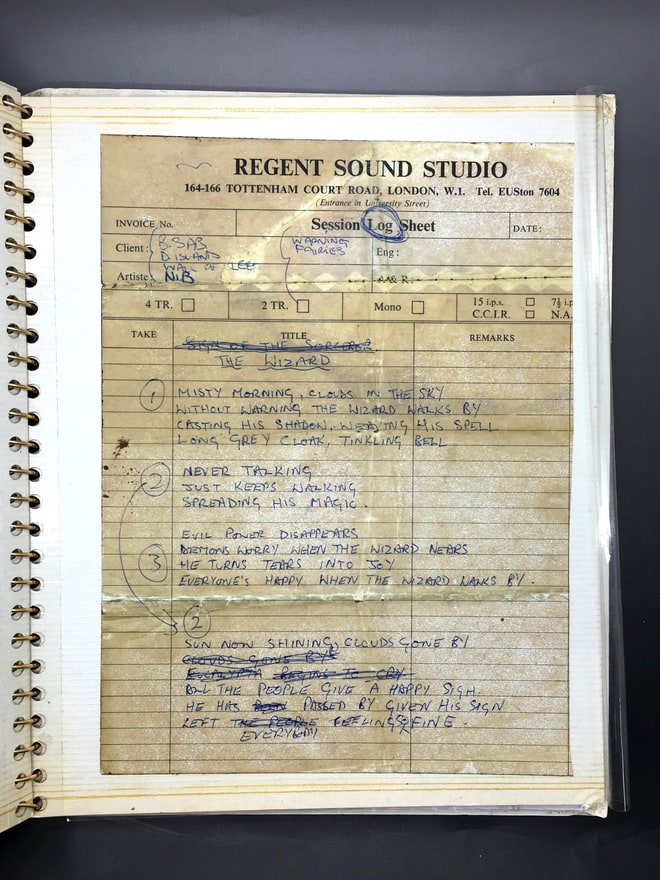 REGENT SOUND STUDIO
164-166 TOTTENHAM COURT ROAD, LONDON, W.1. Tel. EUSton 7604
(Entrance in University Street)
INVOICE No. Session Log Sheet DATE:
Client: B. SAB WARNING Eng:
D. ISLAND FAIRIES
WALL OF
Artiste: NIB A & R:
4 TR. 2 TR. Mono 15 i.p.s. 7½ i.p
C.C.I.R. N.A.
TAKE TITLE REMARKS
SIGN OF THE SORCERER
THE WIZARD
1 MISTY MORNING, CLOUDS IN THE SKY
WITHOUT WARNING THE WIZARD WALKS BY
CASTING HIS SHADOW, WEAVING HIS SPELL
LONG GREY CLOAK, TINKLING BELL
2 NEVER TALKING
JUST KEEPS WALKING
SPREADING HIS MAGIC.
EVIL POWER DISAPPEARS
DEMONS WORRY WHEN THE WIZARD NEARS
3 HE TURNS TEARS INTO JOY
EVERYONE'S HAPPY WHEN THE WIZARD WALKS BY.
2
SUN NOW SHINING, CLOUDS GONE BY
CLOUDS GONE BYE
BEGINS TO CRY
ALL THE PEOPLE GIVE A HAPPY SIGH.
HE HAS PASSED BY GIVEN HIS SIGN
LEFT THE PEOPLE FEELING FINE.
EVERYBODY